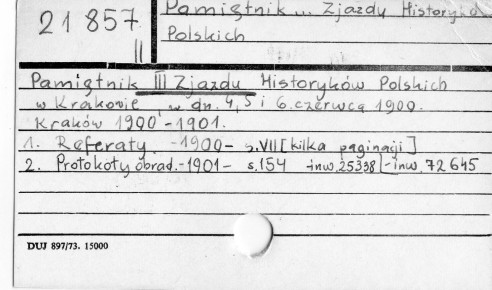 21857
II
Pamiętnik ... Zjazdu Historyków
Polskich
Pamiętnik III Zjazdu Historyków Polskich
w Krakowie w dn. 4, 5 i 6. czerwca 1900.
Kraków 1900-1901.
1. Referaty. -1900- s. VII [kilka paginacji]
2. Protokoły obrad. -1901- s. 154 inw. 25338 - inw. 72645
DUJ 897/73. 15000